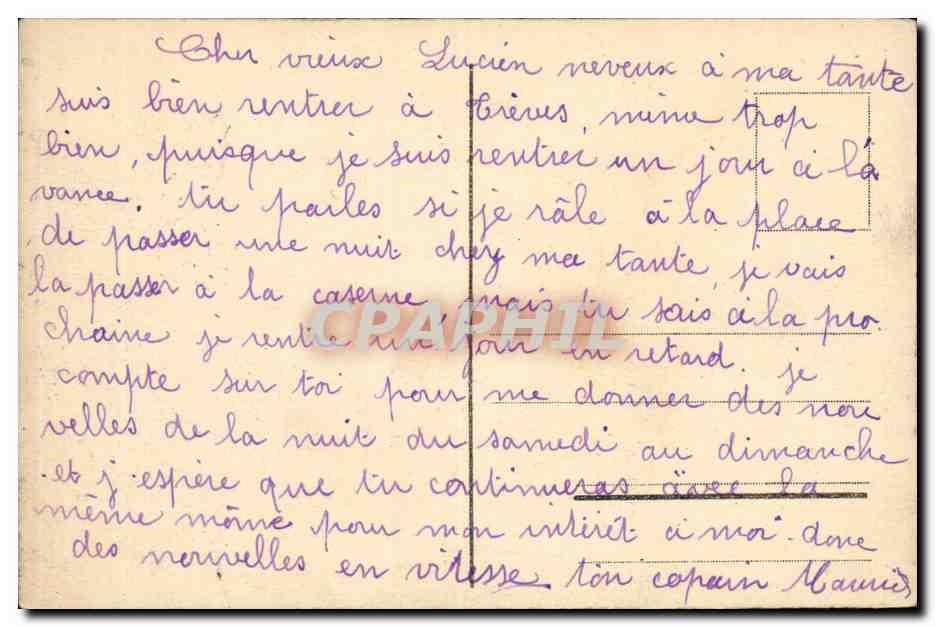 Cher vieux Lucien neveux à ma tante
suis bien rentrer à Trèves, même trop
bien, puisque je suis rentrer un jour a l'a
vance. tu parles si je râle à la place
de passer une nuit chez ma tante, je vais
la passer à la caserne, mais tu sais à la pro.
CPAPHIL
chaine je rentre un jour en retard. je
compte sur toi pour me donner des nou
velles de la nuit du samedi au dimanche
et j'espère que tu continueras avec la
même môme pour mon intérêt a moi. donc
des nouvelles en vitesse ton copain Maurice